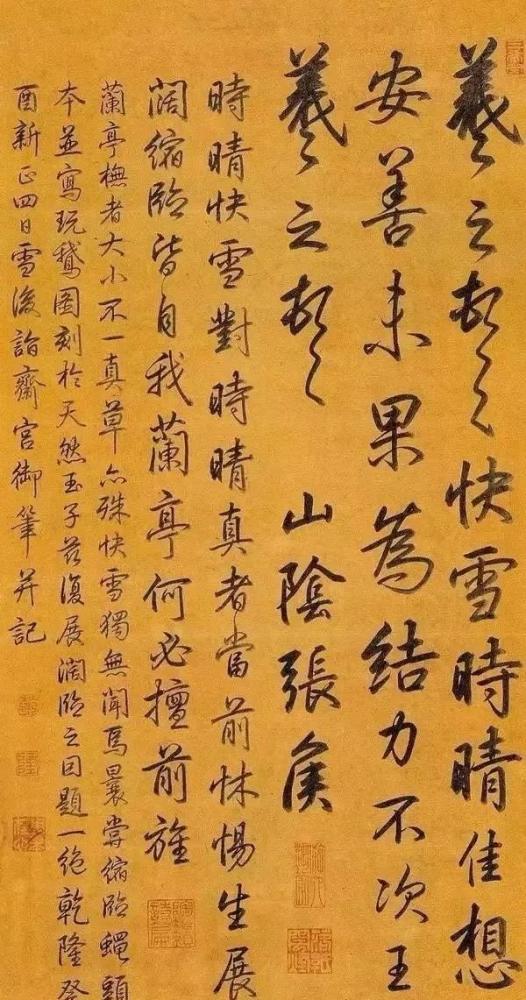 羲之頓首快雪時晴佳想
安善未果為結力不次王
羲之頓首
山陰張侯
時晴快雪對時晴真者當前怵惕生展
闊縮臨皆自我蘭亭何必擅前旌
蘭亭橅者大小不一真草亦殊快雪獨無聞焉曩嘗縮臨蝇頭
本並寫玩鵝圖刻於天然玉子茲復展濶臨之因題一絕乾隆癸
酉新正四日雪後詣齋宮御筆并記